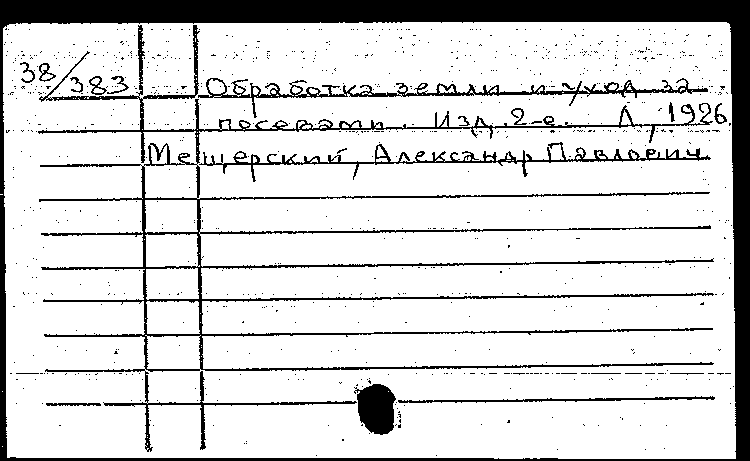 38/383 Обработка земли и уход за
посевами. Изд. 2-е. Л., 1926
Мещерский, Александр Павлович